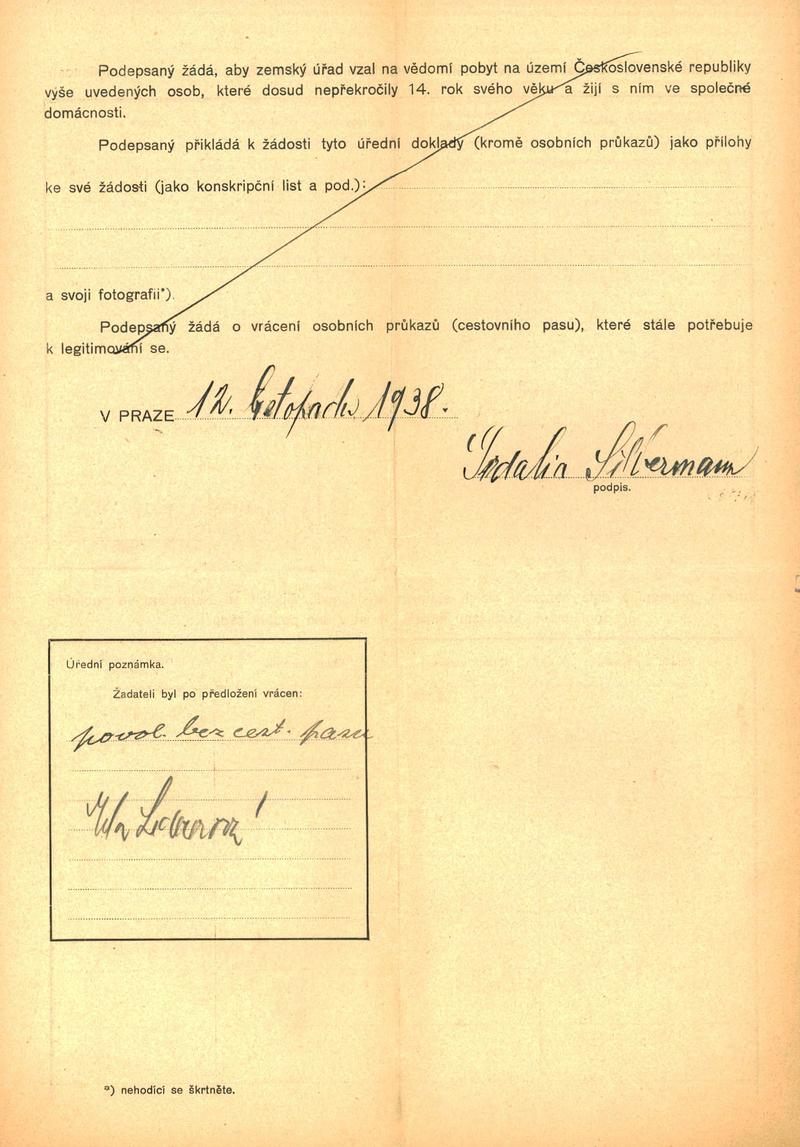 Podepsaný žádá, aby zemský úřad vzal na vědomí pobyt na území Československé republiky
výše uvedených osob, které dosud nepřekročily 14. rok svého věku a žijí s ním ve společné
domácnosti.
Podepsaný přikládá k žádosti tyto úřední doklady (kromě osobních průkazů) jako přílohy
ke své žádosti (jako konskripční list a pod.):
a svoji fotografii*).
Podepsaný žádá o vrácení osobních průkazů (cestovního pasu), které stále potřebuje
k legitimování se.
V PRAZE 12. listopadu 1938.
Sidalia Silbermann
podpis.
Úřední poznámka.
Žadateli byl po předložení vrácen:
povol. bez cest. pasu
*) nehodící se škrtněte.